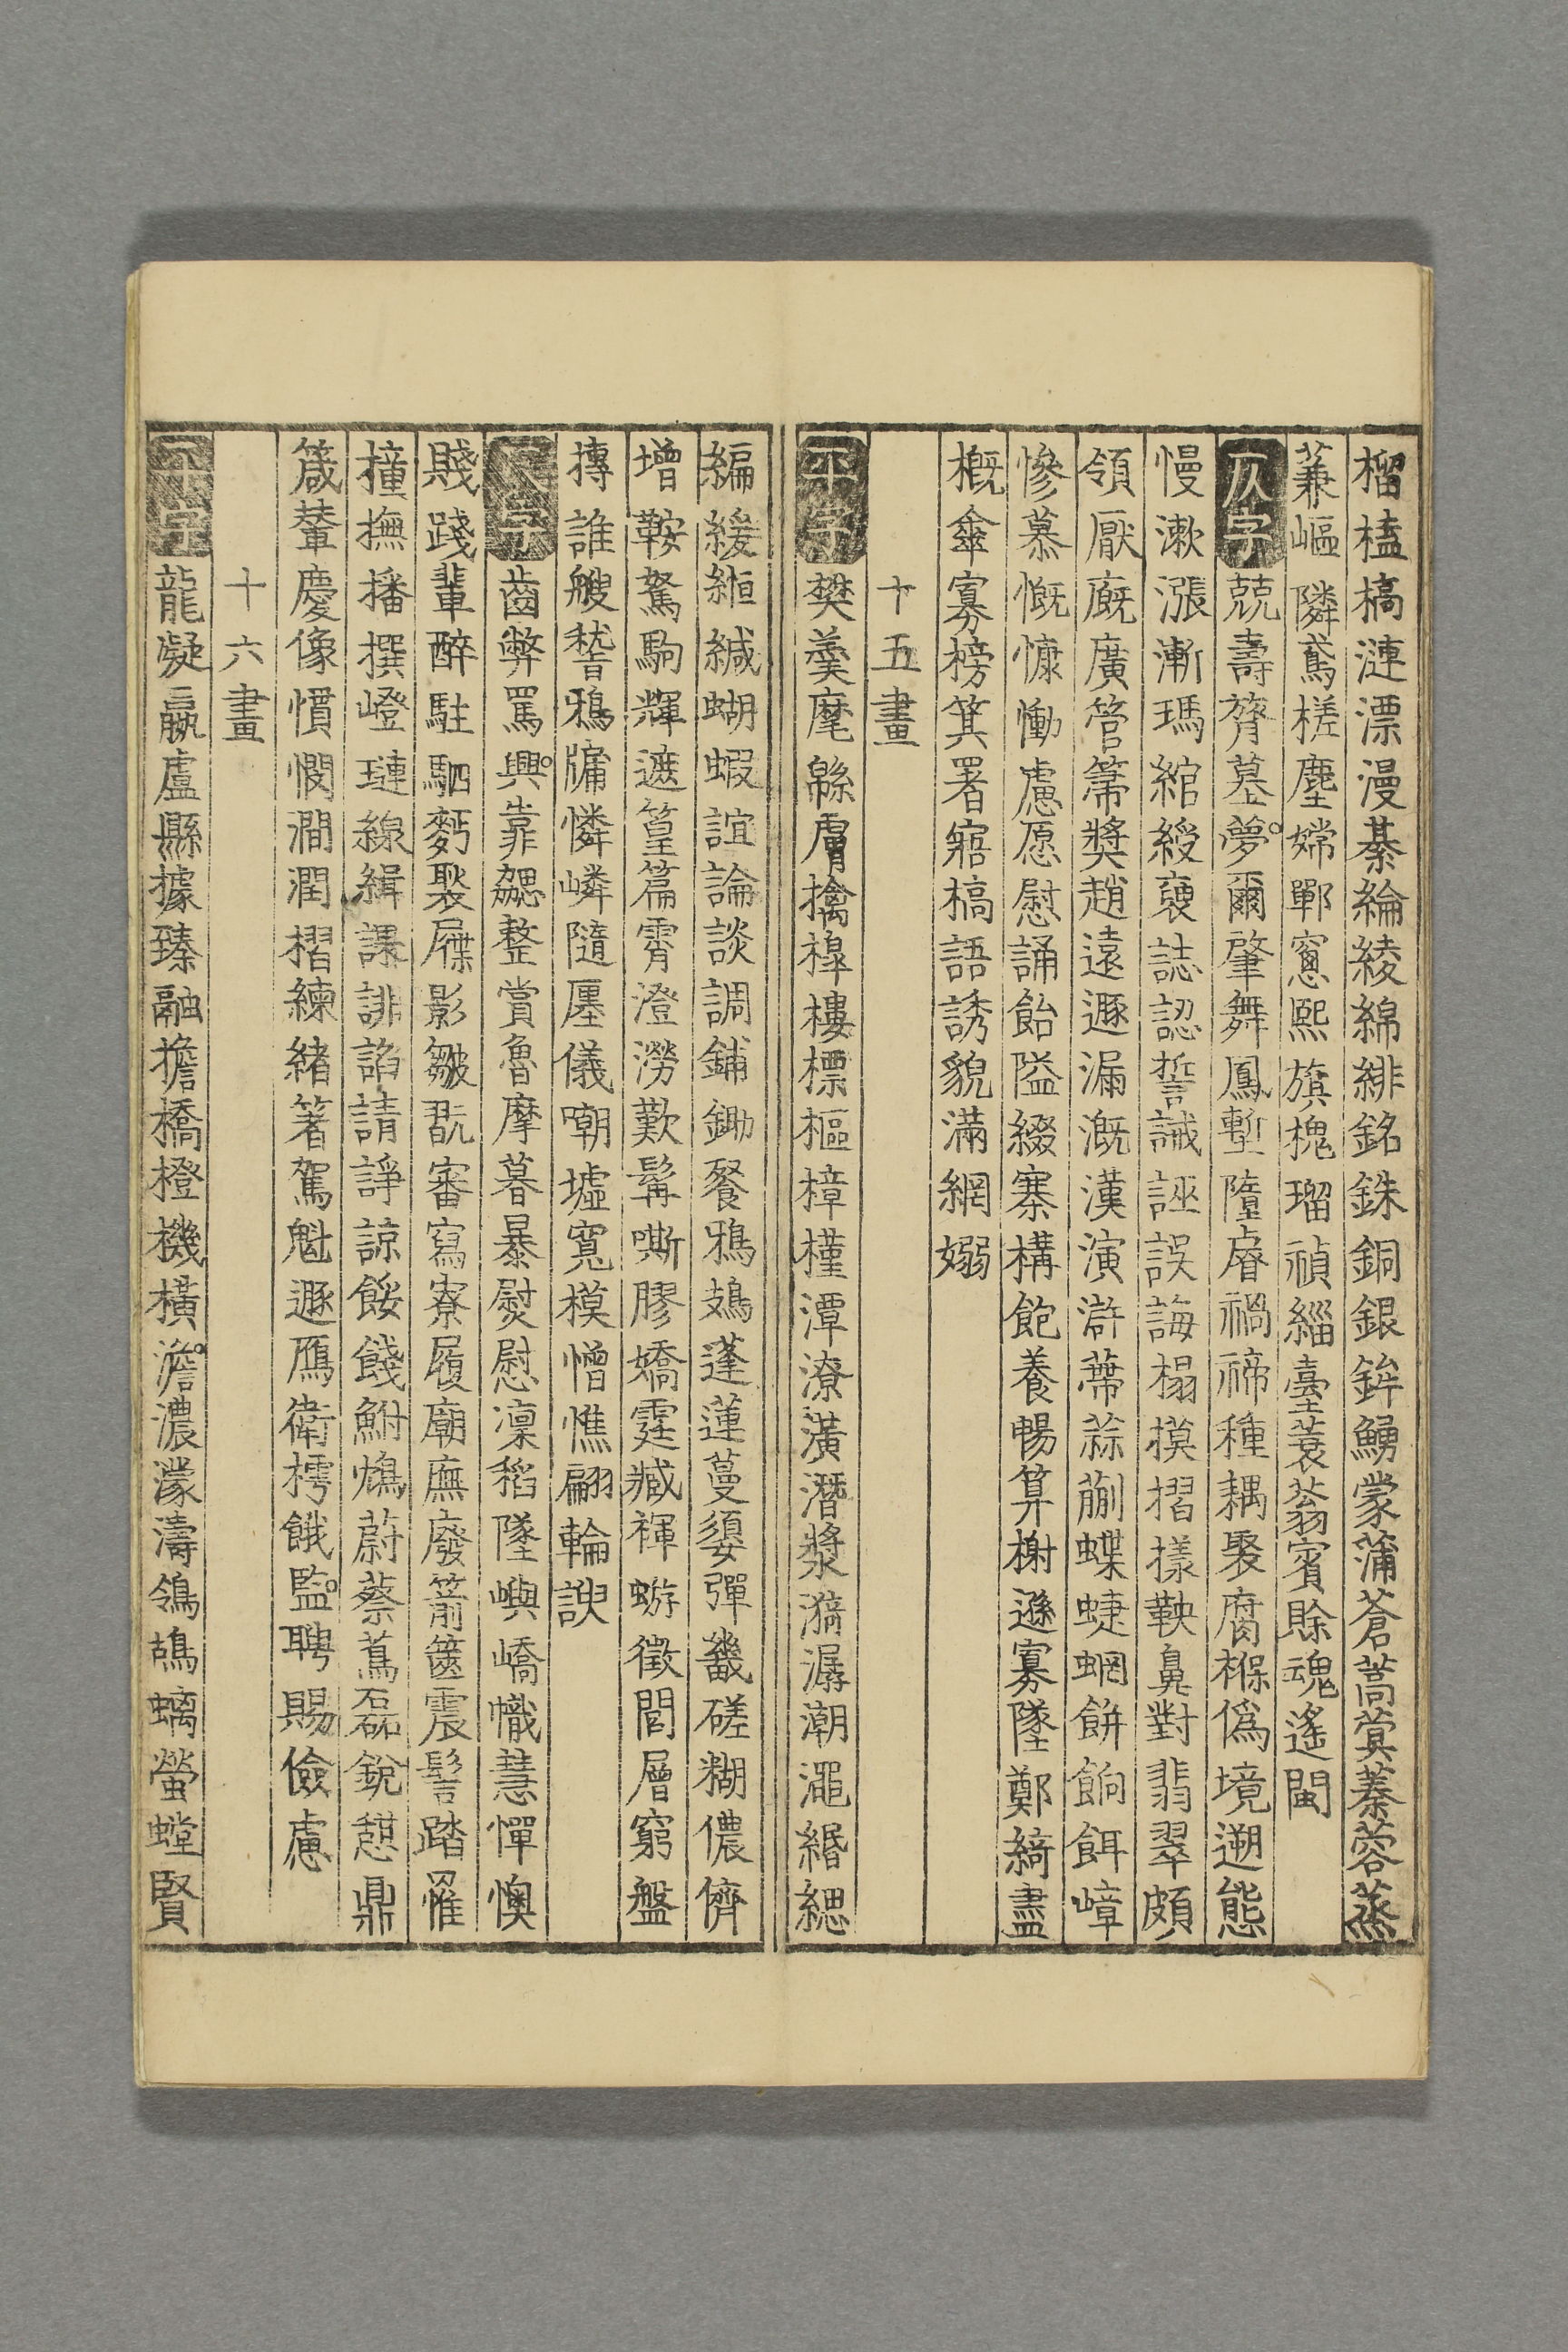 榴榼槁漣漂漫綦綸綾綿緋銘銖銅銀鉾鰳蒙蒲蒼蒿蓂蓁蓉蒸
蒹嶇隣鳶槎塵嫦鄲窻熙旗槐瑠禎緇臺蓑蓊賓賖魂遙閩
仄字兢壽膂墓夢爾肇舞鳳塹隨膚禍禘種耦聚腐褓僞境遡態
慢漱漲漸瑪綰綬敻誌認誓誡誣誤誨榻摸摺摚鞅鼻對翡翠頗
領厭廐廣管箒奬趙遠遯漏漑漢演滸蔕蒜蒯蝶蜨蜩餅餉餌嶂
慘慕慨慷慟慮愿慰誦飴隘綴寨構飽養暢算榭遜寡墜鄭綺盡
概傘寡榜箕署寤槁語誘貌滿網嫋
十五畫
平字樊羹麾緜膚擒槹樓標樞樟槿潭潦潢潛漿漪潺潮澠緡緦
編緩緪緘蝴蝦誼論談調鋪鋤餐鴉鴂蓬蓮蔓嬃彈畿磋糊儂儕
增鞍駑駒輝遮篁篇霄澄澇歎髯嘶膠嬌霆臧褌蝣徵閭層窮盤
摶誰艘嵆鴉牖憐嶙隨廛儀嘲墟寬模憎憔翩輪諛
仄字齒弊罵輿靠勰整賞魯摩暮暴熨慰凜稻墜嶼嶠幟慧憚懊
賤踐輩醉駐駟麪褧屧影皺翫審寫寮履廟廡廢箭篋震髻踏罹
撞撫播撰嶝璉線緝課誹諂請諍諒餒餞鮒鴆蔚蔡蔦磊銳憇鼎
箴輦慶像慣憫澗潤摺練緒箸駕魁遯鴈衛樗餓監聘賜儉慮
十六畫
平字龍凝嬴盧縣據臻融擔橋橙機橫澹濃濛濤鴒鴣螭螢螳賢